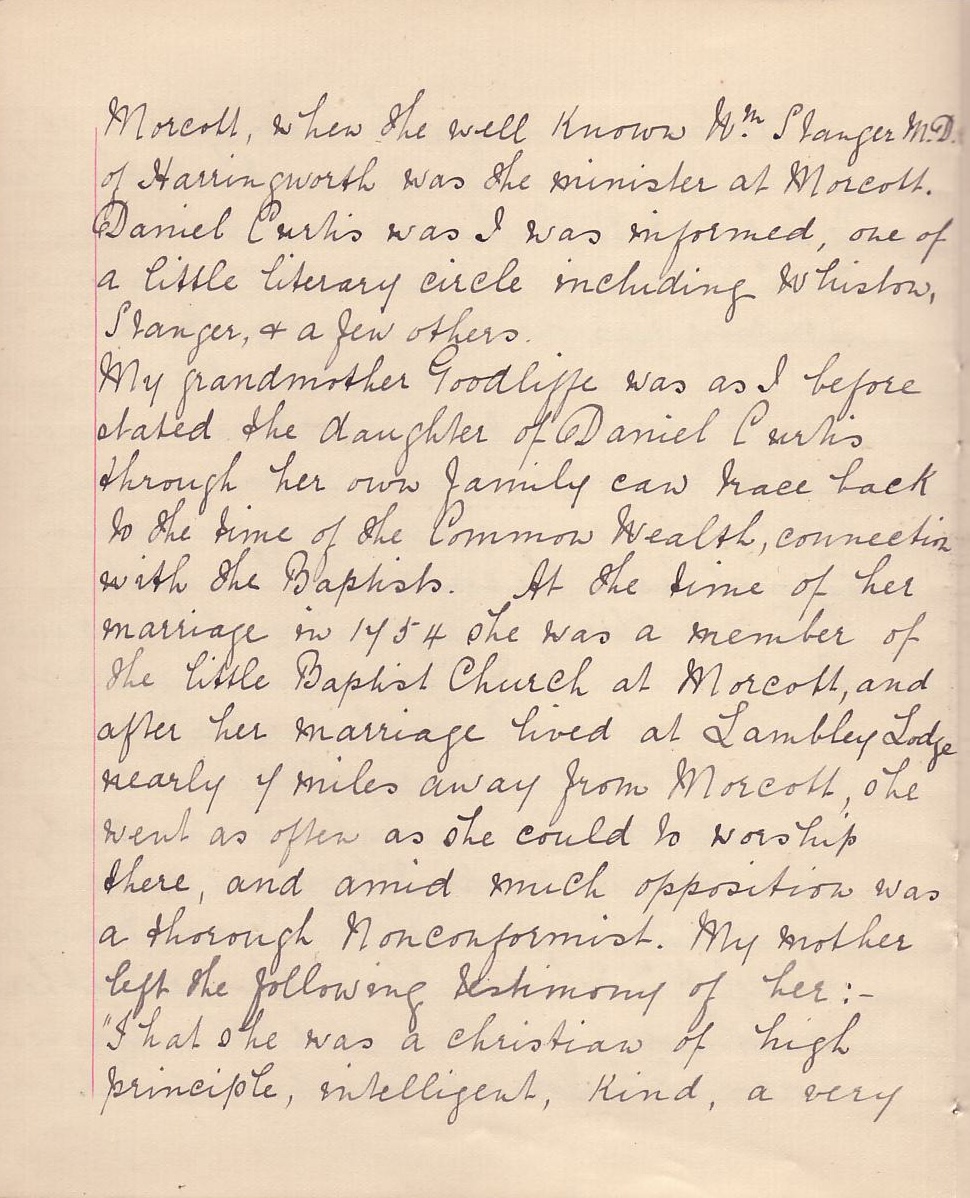 Morcott, when the well known Wm Stanger M.D.
of Harringworth was the minister at Morcott.
Daniel Curtis was I was informed, one of
a little literary circle including Whiston,
Stanger, & a few others.
My grandmother Goodliffe was as I before
stated the daughter of Daniel Curtis
through her own family can trace back
to the time of the Common Wealth, connection
with the Baptists. At the time of her
marriage in 1754 she was a member of
the little Baptist Church at Morcott, and
after her marriage lived at Lambley Lodge
nearly 7 miles away from Morcott, she
went as often as she could to worship
there, and amid much opposition was
a thorough Nonconformist. My mother
left the following testimony of her:-
"That she was a christian of high
principle, intelligent, kind, a very